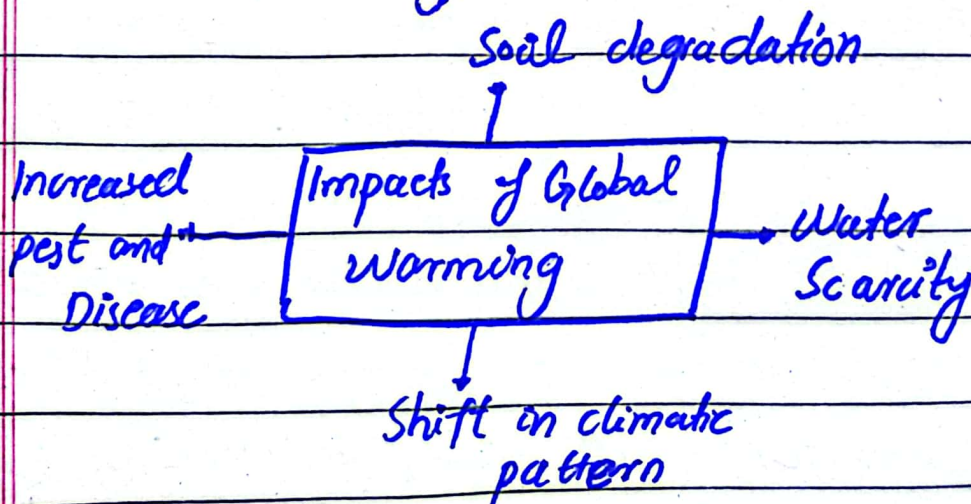 Soil degradation
Increased
pest and
Disease
Impacts of Global
Warming
Water
Scarcity
Shift in climatic
pattern